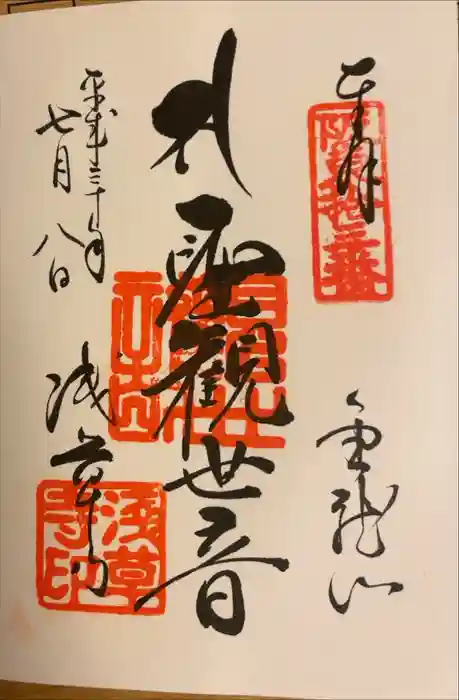 奉拝
金龍山
聖観世音
平成三十年
七月八日
浅草寺
浅草寺印